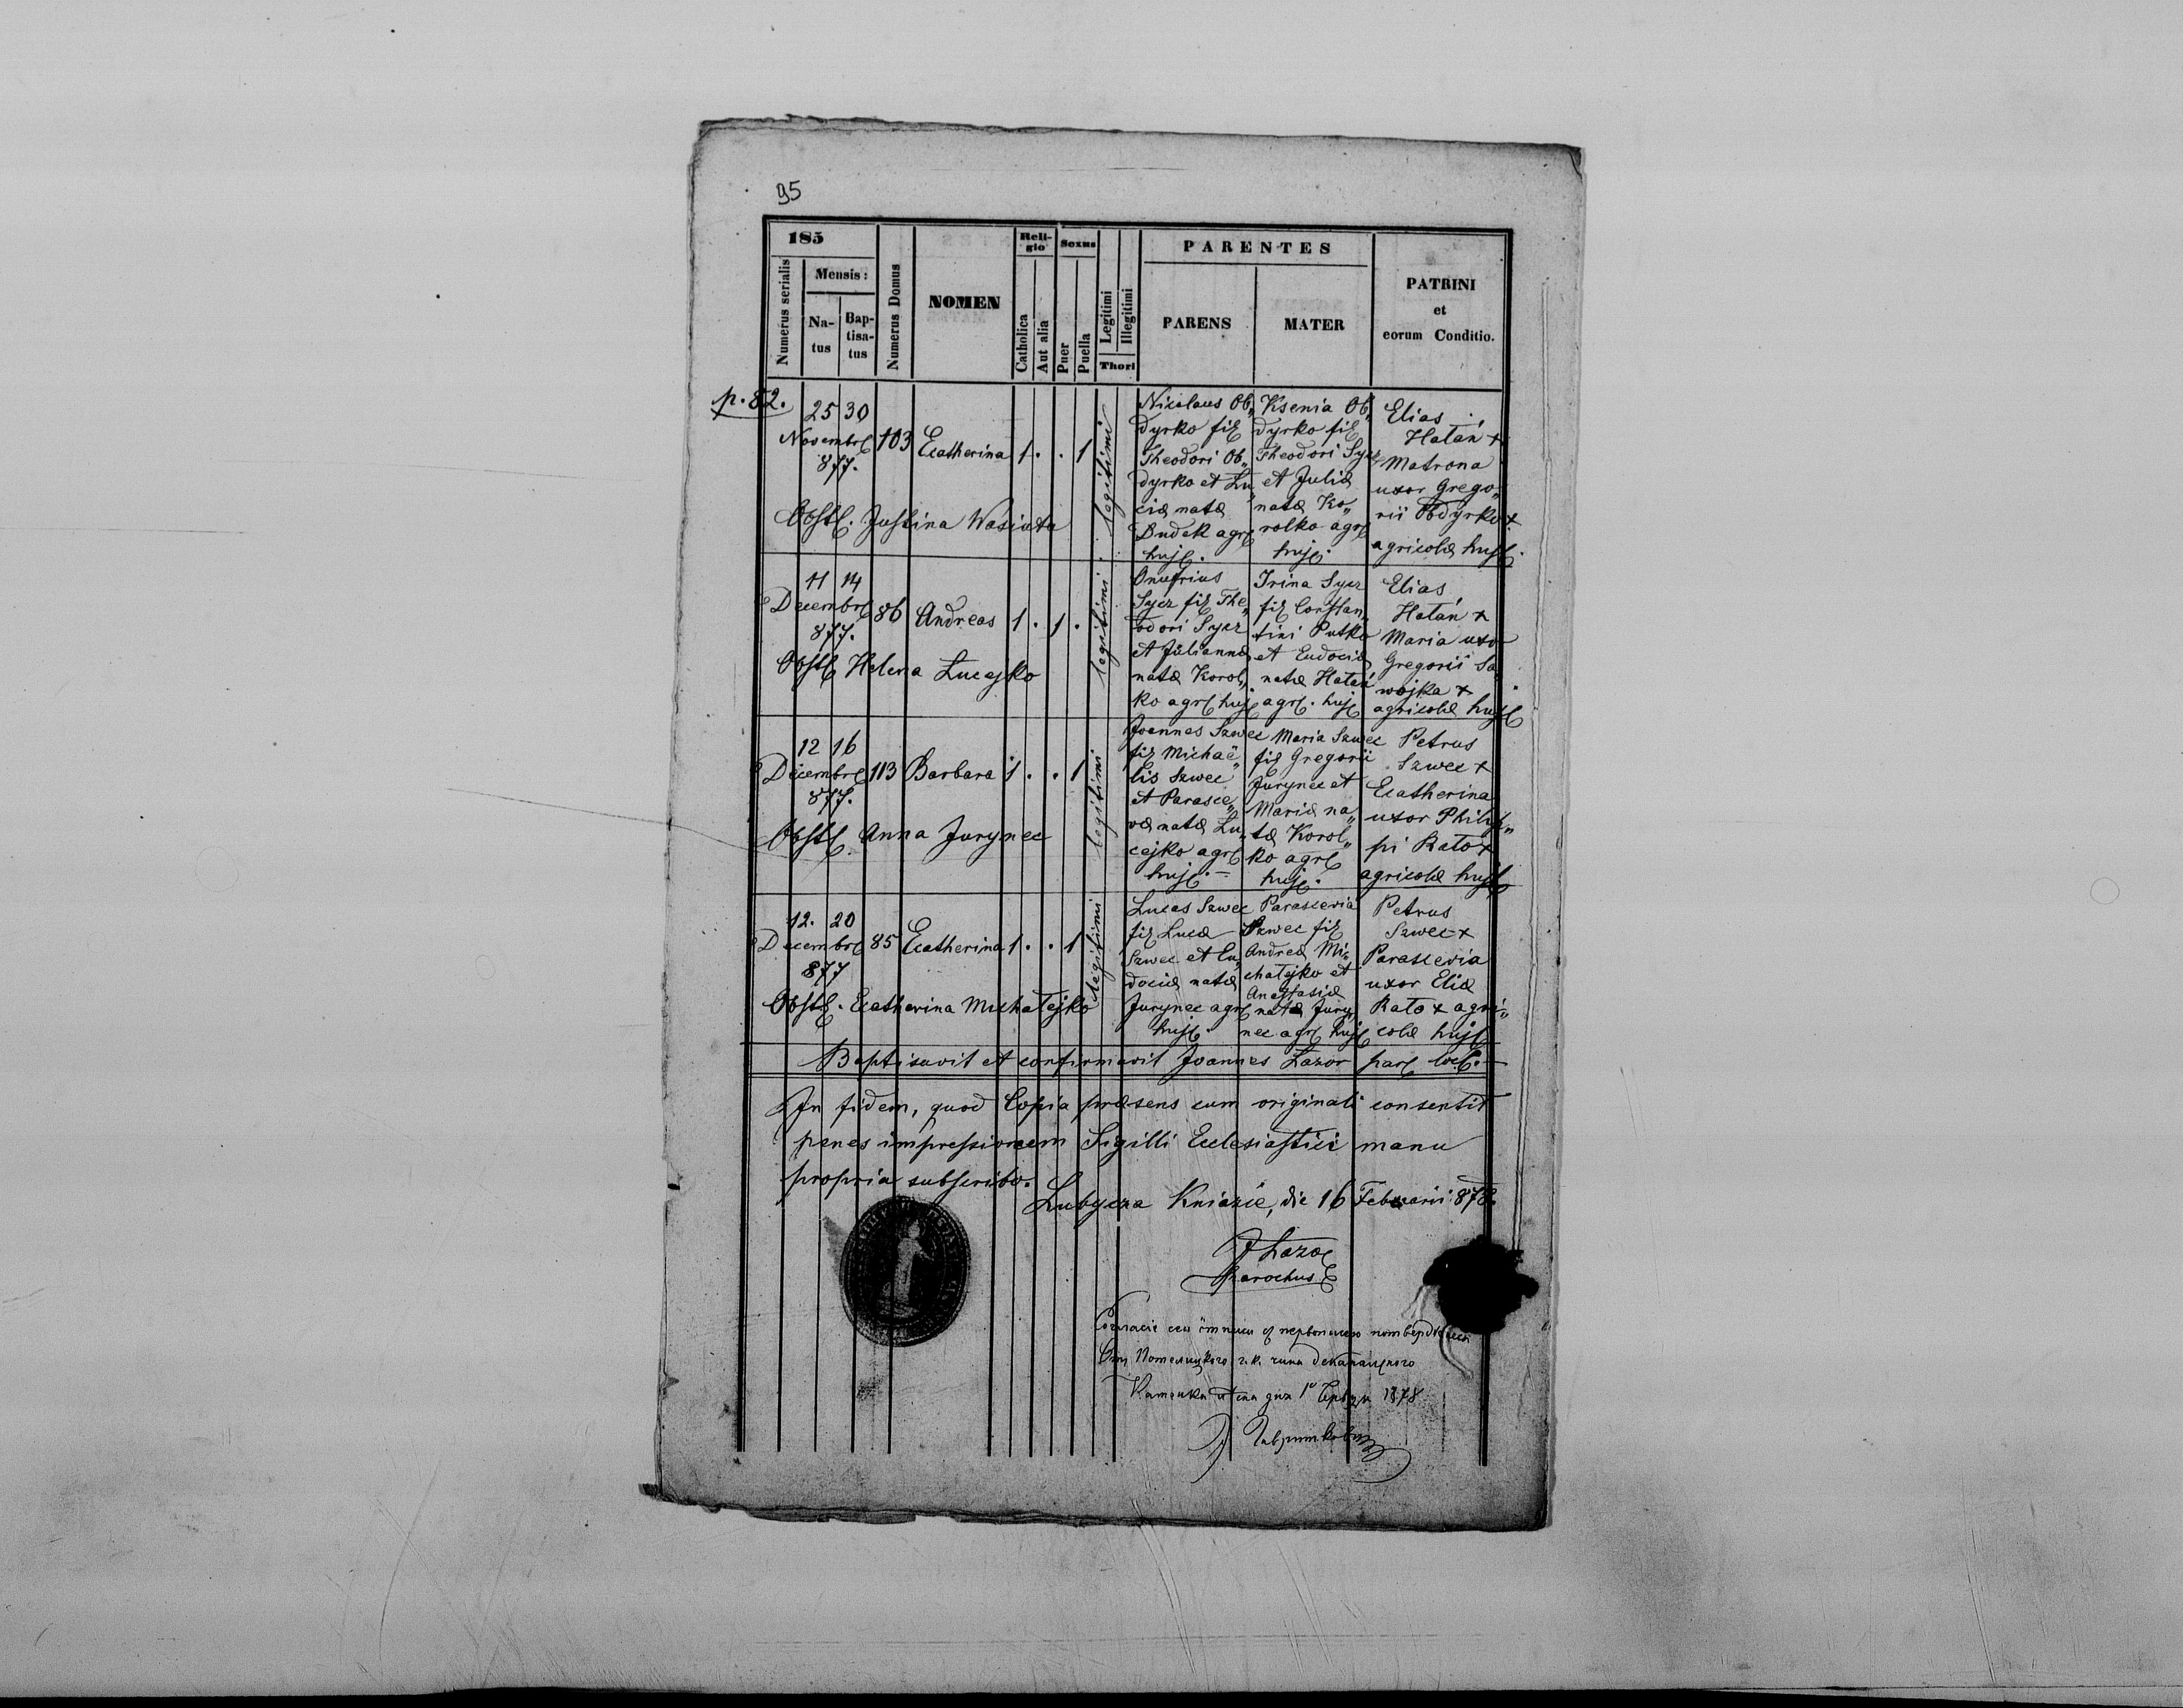 95
185
Numerus serialis
Mensis:
Na-
tus
Bap-
tisa-
tus
Numerus Domus
NOMEN
Reli-
gio
Catholica
Aut alia
Sexus
Puer
Puella
Legitimi
Illegitimi
Thori
PARENTES
PARENS
MATER
PATRINI
et
eorum Conditio.
p. 82.
25 30
Novembr
877.
103 Ecatherina 1 . . 1
legitimi
Obst. Justina Wasiuta
Nicolaus Ob„
dyrko fil
Theodori Ob„
dyrko et Lu„
ciæ natæ
Dudek agr
huj.
Ksenia Ob„
dyrko fil
Theodori Sycz
et Juliæ
natæ Ko„
rolko agr
huj.
Elias
Hałań +
Matrona
uxor Grego„
rii Obdyrko +
agricolæ huj.
11 14
Decembr
877.
86 Andreas 1 . 1 .
legitimi
Obst Helena Lucejko
Onufrius
Sycz fil The„
odori Sycz
et Juliannæ
natæ Korol„
ko agr huj
Irina Sycz
fil Constan„
tini Putko
et Eudociæ
natæ Hałań
agr. huj
Elias
Hałań +
Maria uxor
Gregorii Sa„
wojka +
agricolæ huj
12 16
Decembr
877.
113 Barbara 1 . . 1
legitimi
Obst. Anna Jurynec
Joannes Szwec
fil Michaë„
lis Szwec
et Parasce„
væ natæ Lu„
cejko agr
huj. –
Maria Szwec
fil Gregorii
Jurynec et
Mariæ na„
tæ Korol„
ko agr
huj.
Petrus
Szwec +
Ecatherina
uxor Philip„
pi Rato +
agricolæ huj
12. 20
Decembr
877
85 Ecatherina 1 . . 1
legitimi
Obst. Ecatherina Michałejko
Lucas Szwec
fil Lucæ
Szwec et Eu„
dociæ natæ
Jurynec agr
huj.
Parascevia
Szwec fil
Andreæ Mi„
chałejko et
Anastasiæ
natæ Jury„
nec agr huj
Petrus
Szwec +
Parascevia
uxor Eliæ
Rato + agri„
colæ huj
Baptisavit et confirmavit Joannes Lazor par loc.
In fidem, quod Copia præsens cum originali consentit
penes impressionem Sigilli Ecclesiastici manu
propria subscribo.
Lubycza Kniazie, die 16 Februarii 878.
J Lazor
Parochus
1878